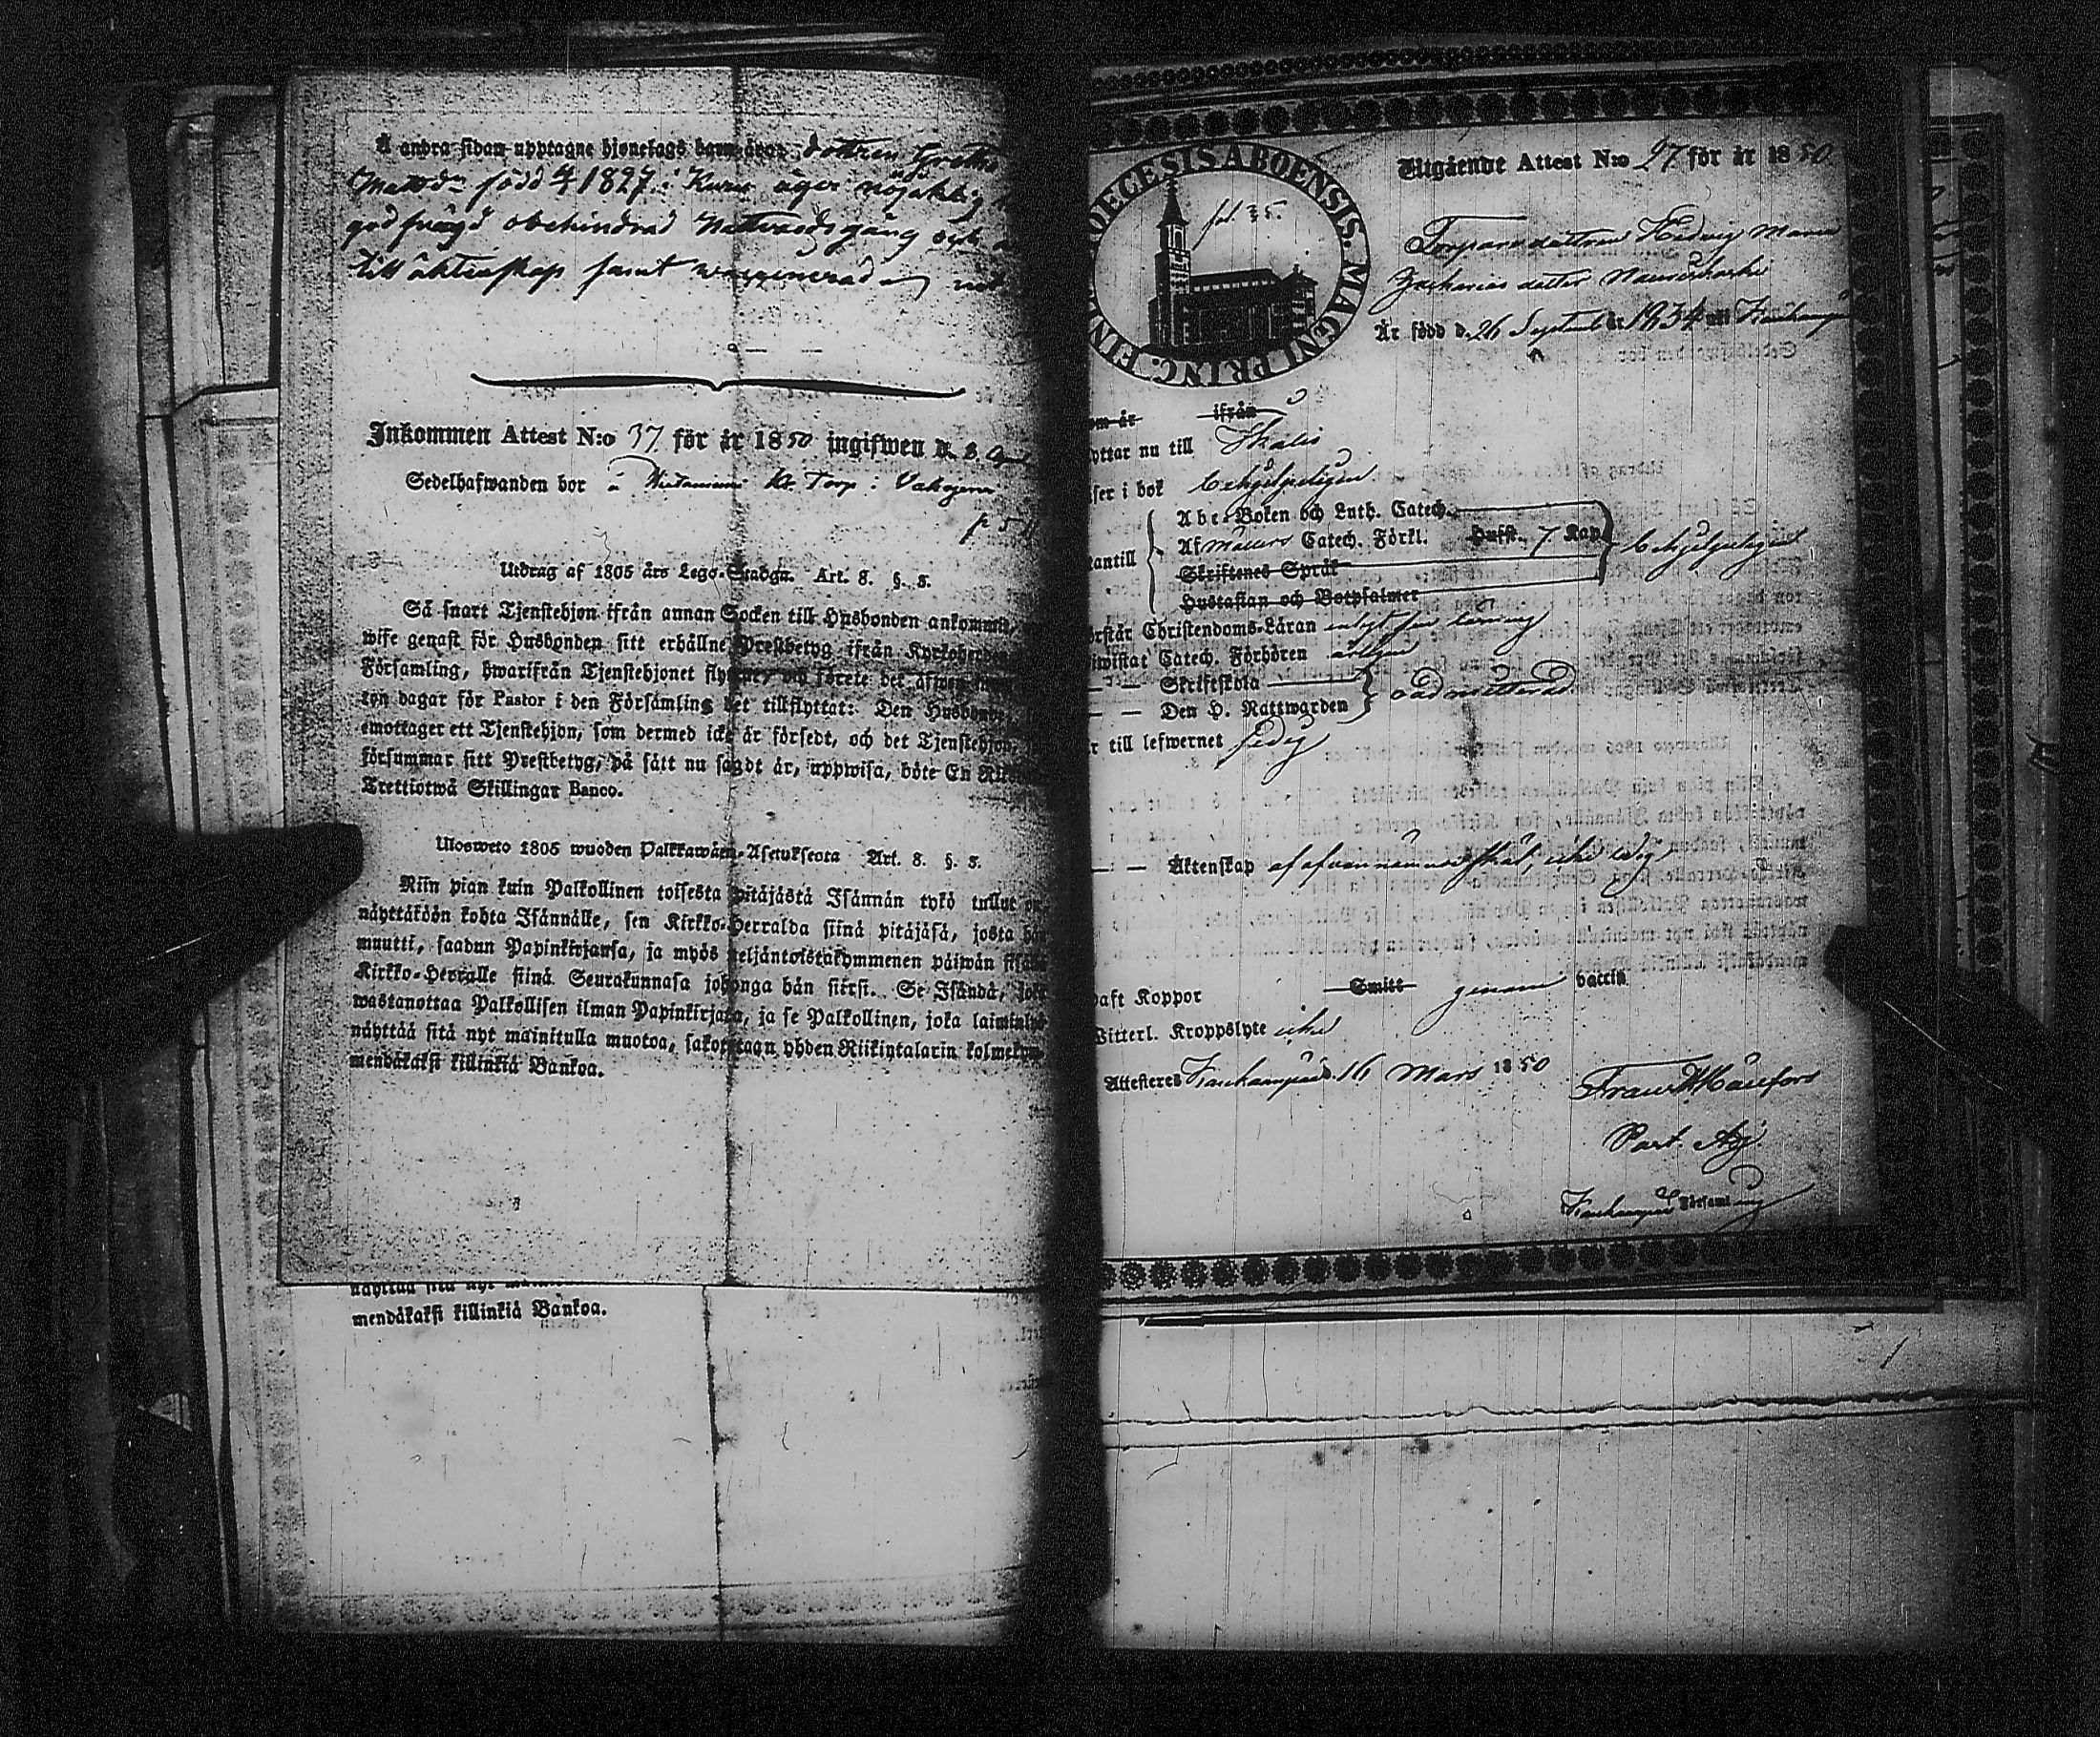 Å andra sidan upptagne hjonelags barn äro: dottren Gretha
Mattsdr född 4/7 1827 i Kuru äger nöjaktig
god frägd obehindrad Nattvardsgång och
till äktenskap samt waccinerad
Inkommen Attest N:o 37 för år 1850 ingifwen d. 8. April
Sedelhafwanden bor å Kr. Torp i Vahojerwi
p 5
Utdrag af 1805 års Lego-Stadga. Art. 8. §. 5.
Så snart Tjenstehjon ifrån annan Socken till Husbonden ankommit,
wise genast för Husbonden sitt erhållne Prestbetyg ifrån Kyrkoherden
Församling, hwarifrån Tjenstehjonet flyttat, och förete det äfwen inom
ton dagar för Pastor i den Församling det tillflyttat: Den Husbonde,
emottager ett Tjenstehjon, som dermed icke är försedt, och det Tjenstehjon,
försummar sitt Prestbetyg, på sätt nu sagdt är, uppwisa, böte En Riks
Trettiotwå Skillingar Banco.
Ulosweto 1805 wuoden Palkkawäen-Asetuksesta Art. 8. §. 5.
Niin pian kuin Palkollinen toisesta pitäjästä Isännän tykö tullut on,
näyttäköön kohta Isännälle, sen Kirkko-Herralda siinä pitäjäsä, josta hän
muutti, saadun Papinkirjansa, ja myös neljäntoistakymmenen päiwän sisällä
Kirkko-Herralle siinä Seurakunnasa johonga hän siirsi. Se Isändä, joka
wastanottaa Palkollisen ilman Papinkirjata, ja se Palkollinen, joka laiminlyö
näyttää sitä nyt mainitulla muotoa, sakotetaan yhden Riikintalarin kolmekym-
mendäkaksi killinkiä Bankoa.
näyttää sitä nyt
mendäkaksi killinkiä Bankoa.
DIOECESIS ABOENSIS. MAGNI PRINC. FINL.
fol. 35.
Utgående Attest N:o 27 för år 1850
Torparedottren Hedvig Maria
Zacharias dotter
Är född d. 26 September år 1834 uti Kankaanpää
om år ifrån
yttar nu till Ikalis
äser i bok behjelpeligen
Abc-Boken och Luth. Catech.
Af Möllers Catech. Förkl. Husst. 7 Kap
antill behjelpeligen
Skriftenes Språk
Hustaflan och Botpsalmer
örstår Christendoms-Läran enligt sin lärning
iwistat Catech. Förhören årligen
— — Skriftskola
oadmitterad
— — Den H. Nattwarden
r till lefwernet sedig
— — Äktenskap af ofvannämnde skäl, icke ledig
haft Koppor Smitt genom vaccin
Witterl. Kroppslyte icke
Attesteres Kankaanpää d. 16 Mars 1850
Past. Adj.
Kankaanpää Församling